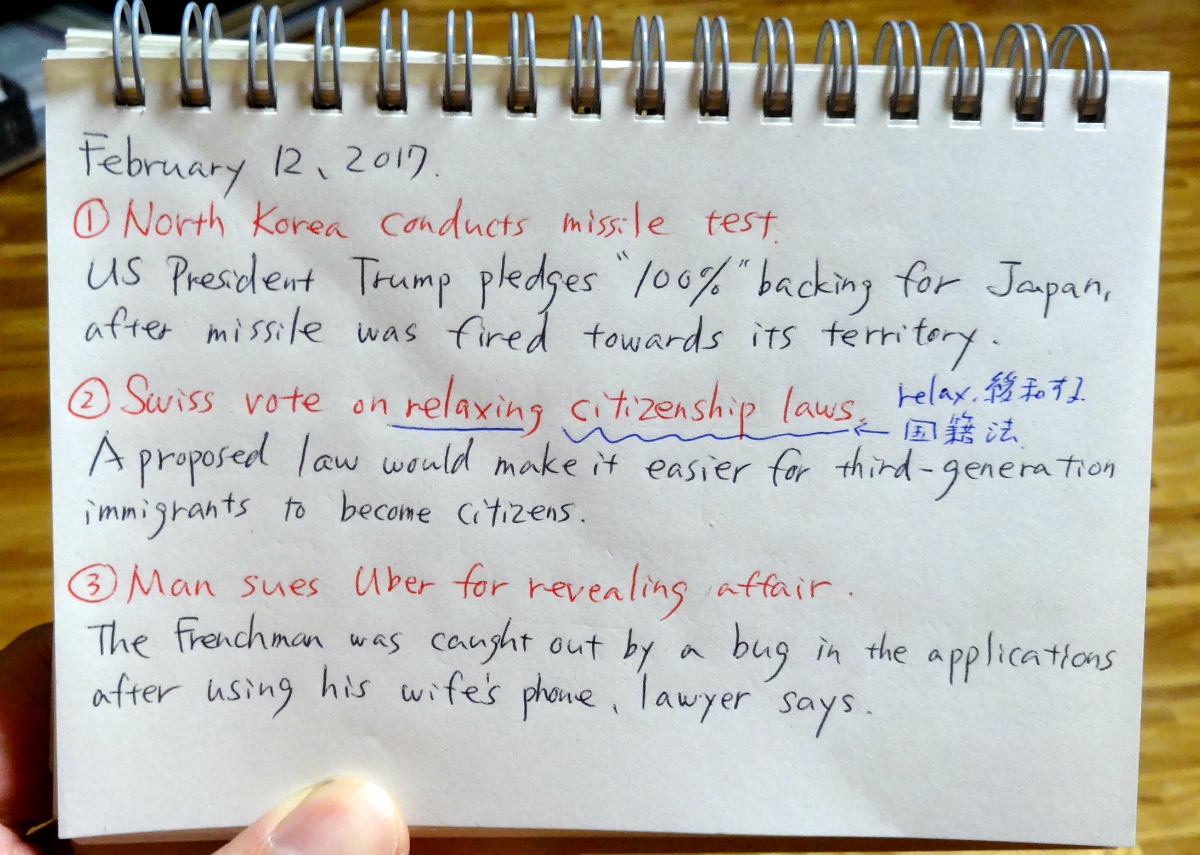 February 12、2017.
① North Korea conducts missile test.
US President Trump pledges "100%" backing for Japan,
after missile was fired towards its territory.
② Swiss vote on relaxing citizenship laws. relax. 緩和する
← 国籍法
A proposed law would make it easier for third-generation
immigrants to become citizens.
③ Man sues Uber for revealing affair.
The Frenchman was caught out by a bug in the applications
after using his wife's phone, lawyer says.